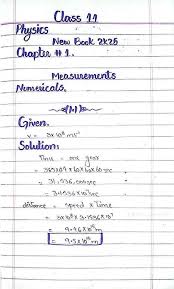 Class 11
Physics
New Book 2k25
Chapter #1.
Measurements
Numericals.
(1.1)
Given.
v = 3x10⁸ ms⁻¹
Solution:
Time = one year
= 365x24x60x60 sec
= 31,536,000 sec
= 3.1536x10⁷ sec
distance = speed x Time
= 3x10⁸ x 3.1536x10⁷
= 9.46x10¹⁵m
= 9.5x10¹⁵m